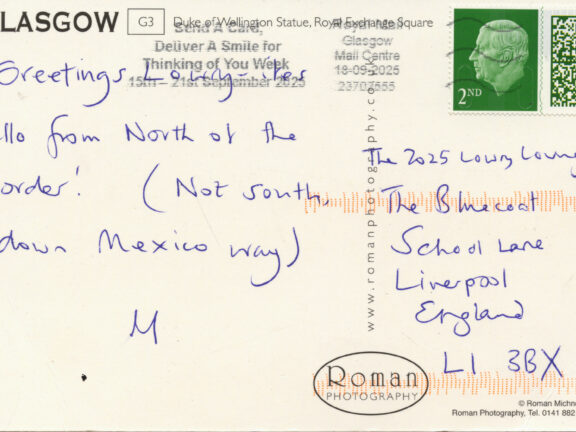 GLASGOW G3 Duke of Wellington Statue, Royal Exchange Square
Send A Card,
Deliver A Smile for
Thinking of You Week
15th - 21st September 2025
Royal Mail
Glasgow
Mail Centre
18-09-2025
23702555
2ND
Greetings Lowry-ites
llo from North of the
order! (Not south,
down Mexico way)
M
www.romanphotography.co.uk
The 2025 Lowry Loung
The Bluecoat
School Lane
Liverpool
England
L1 3BX
Roman
PHOTOGRAPHY
© Roman Michn
Roman Photography, Tel. 0141 882